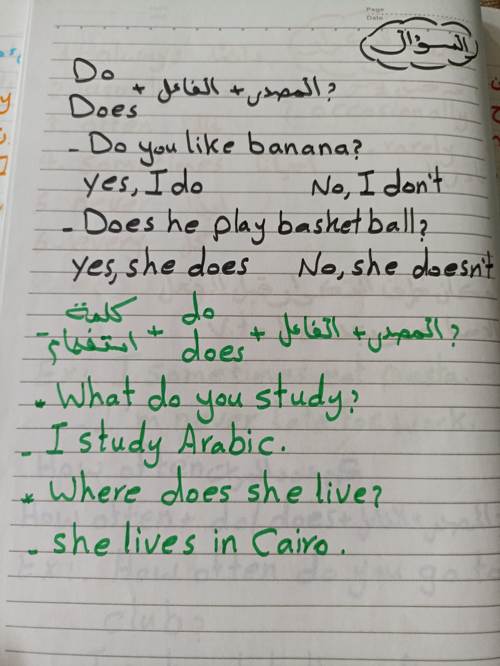 Page
Date
السؤال
Do
Does + الفاعل + المصدر?
- Do you like banana?
yes, I do No, I don't
- Does he play basketball?
yes, she does No, she doesn't
- كلمة استفهام + do does + الفاعل + المصدر?
* What do you study?
- I study Arabic.
* Where does she live?
- she lives in Cairo.